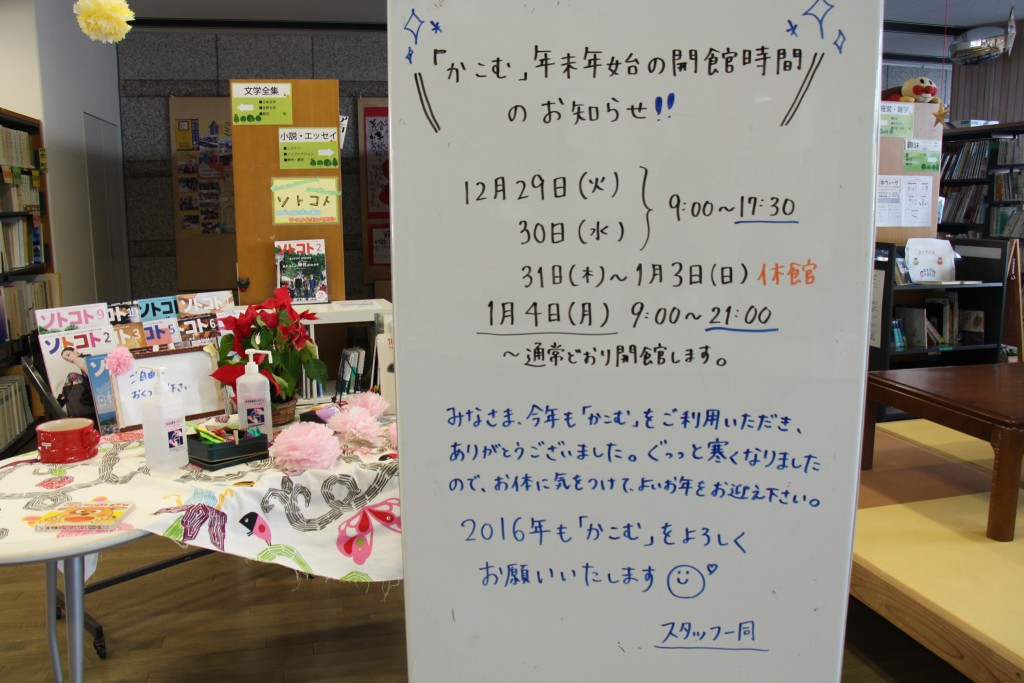 「かこむ」年末年始の開館時間
のお知らせ!!
12月29日(火)
30日(水)
9:00～17:30
31日(木)～1月3日(日) 休館
1月4日(月) 9:00～21:00
～通常どおり開館します。
みなさま、今年も「かこむ」をご利用いただき、
ありがとうございました。ぐっっと寒くなりました
ので、お体に気をつけて、よいお年をお迎え下さい。
2016年も「かこむ」をよろしく
お願いいたします
スタッフ一同
文学全集
小説・エッセイ
ソトコト
ソトコト2
ソトコト9
ソトコト2
ご自由に
おくつろぎ下さい
趣味